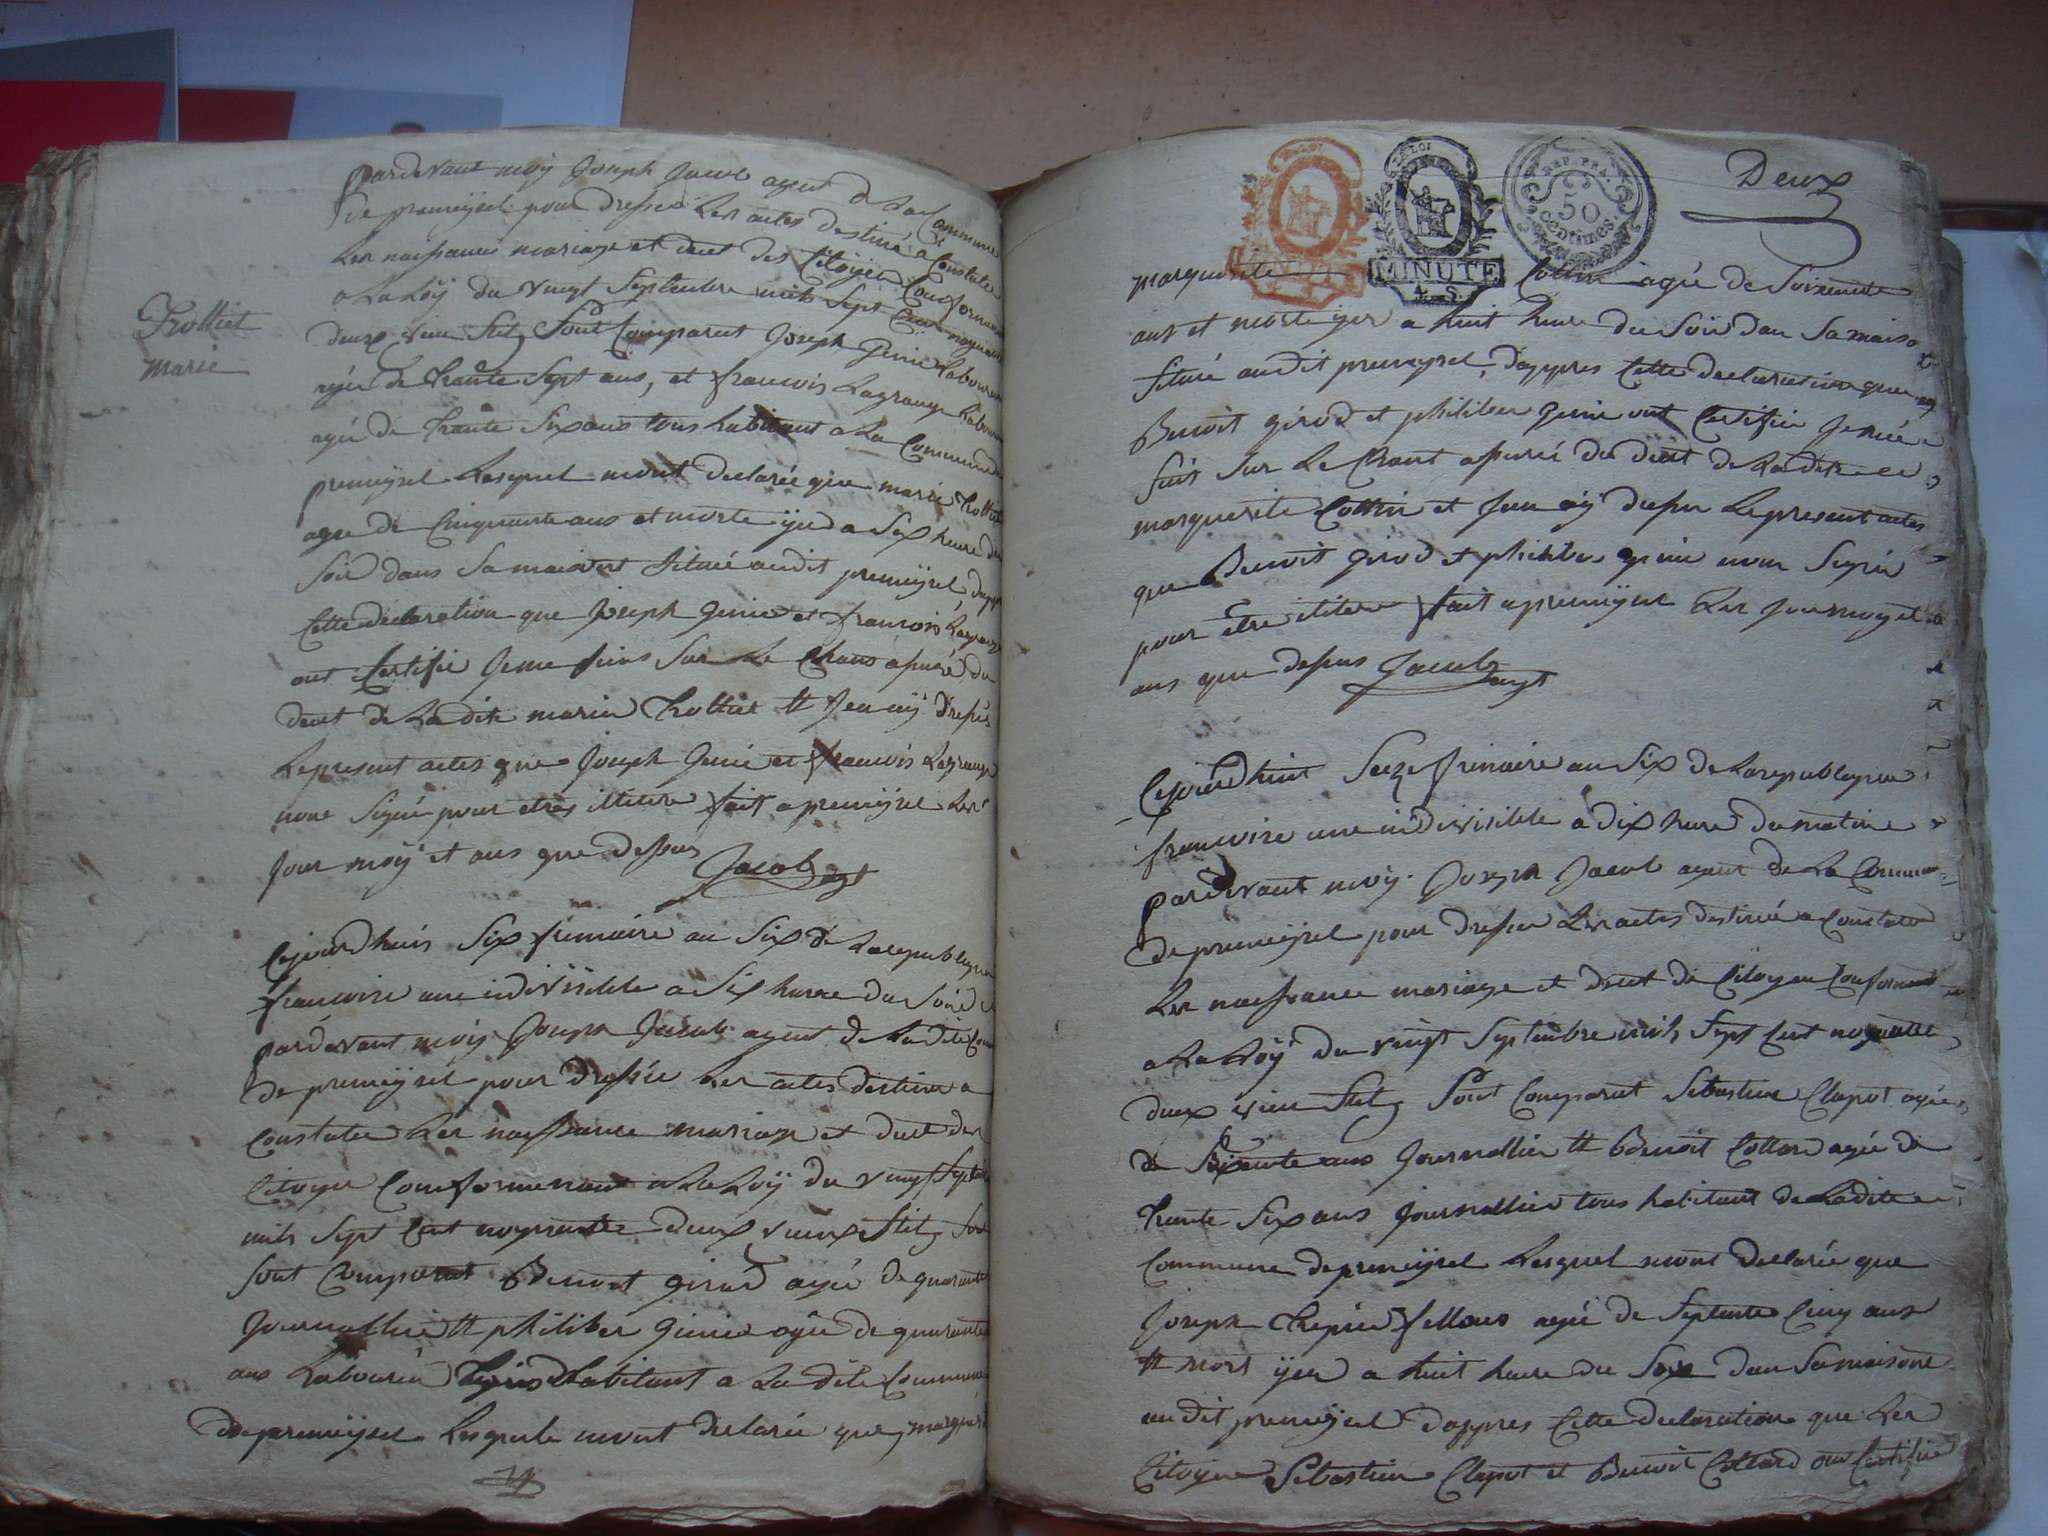 Trolliet
marie
pardevant moÿ Joseph Jacob agent de La Commune
de premeÿsel pour dresser Les actes destiné a Constater
Les naissances mariage et decet des Citoÿen Conformem
a La Loÿ du vingt Septembre mils Sept Cent noynante
deux vieu Stil Sont Comparut Joseph Genie Laboureur
agée de trante Sept ans, et francois Lagrange Laboureur
agée de trante Six ans tous habitant a La Commune de
premeÿsel Lesquel mont declarée que marie trolliet
agée de Cinquante ans et morte ÿer a Six heure du
Soir dans Sa maison Situé audit premeÿsel dapprs
Cette declaration que Joseph Genie et francois Lagrange
ont Certifie Je me Suis Sur Le Chans apuré du
decet de La dite marie trolliet et Jen aÿ dressé
Le present actes que Joseph Genie et francois Lagrange
nont Signé pour etres illitere fait a premeÿsel Les
Jour moÿ et ans que dessus Jacob agt
Cejourdhuis Six frimaire an Six de La republique
francoise une indivisible a Six heure du Soir
pardevant moÿ Joseph Jacob agent de La dite Com
de premeÿsel pour dressée Les actes destine a
Constater Les naissance mariage et decet des
Citoyen Conformemant a La Loÿ du vingt Septem
mils Sept Cent noynante deux vieux Stil
Sont Comparut Benoit girod agée de quarante
Journallier et philiber Genie agée de quarante
ans Laboureur habitant a La dite Commune
de premeÿsel Lesquels mont declarée que marguerit
Deux
LA LOI
MINUTE
REP. FRA.
50
centimes
marguerite Cottin agée de Soixente
ans et morte ÿer a huit heure du Soir dan Sa maison
Situé audit premeysel, dappres Cette declaration que
Benoit girod et philiber Genie ont Certifier Je mée
Suis Sur Le Chant apurée du decet de La dite
marguerite Cottin et Jen aÿ dresser Le present actes
que Benoit girod et philiber genie nont Signé
pour être iliter fait a premeÿsel Les Jour moy et
ans que desus Jacob agt
Cejourdhuit Seize frimaire an Six de La republique
francoise une indivisible a dix heure du matin
pardevant moÿ Joseph Jacob agent de La Commune
de premeÿsel pour dresser Les actes destinée a Constater
Les naissance mariage et decet de Citoyen Conformem
a La Loÿ du vingt Septembre mils Sept Cent noynante
deux vieu Stil Sont Comparut Sebastien Clapot agée
de Soixente ans Journallier et Benoit Cottard agée de
trante Six ans Journallier tous habitant de La dite
Commune de premeÿsel Lesquel mont declarée que
Joseph agée de Septente Cinq ans
et mort ÿer a huit heure du Soir dan Sa maison
audit premeÿsel dappres Cette declaration que Les
Citoyen Sebastien Clapot et Benoit Cottard ont Certifiée